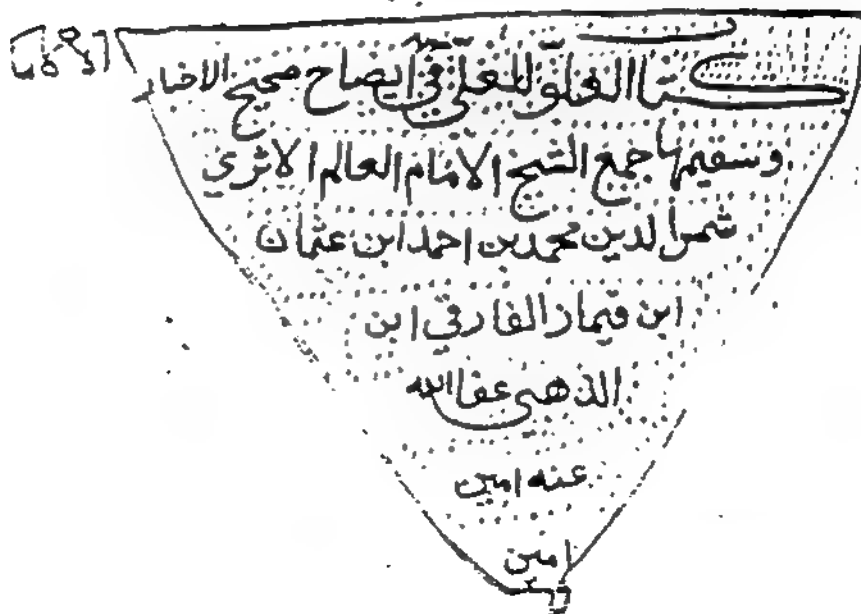 كتاب العلو للعلي في ايضاح صحيح الاخبار
وسقيمها جمع الشيخ الامام العالم الاثري
شمس الدين محمد بن احمد ابن عثمان
ابن قيماز الفارقي ابن
الذهبي عفا الله
عنه امين
امين